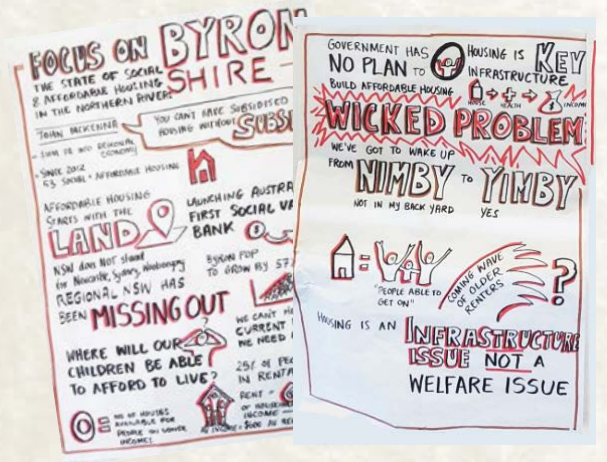 FOCUS ON BYRON
SHIRE
THE STATE OF SOCIAL
& AFFORDABLE HOUSING
IN THE NORTHERN RIVERS
JOHN MCKENNA
YOU CAN'T HAVE SUBSIDISED
HOUSING WITHOUT SUBS
ECONOMY
• SINCE 2012
53 SOCIAL + AFFORDABLE HOUSING
AFFORDABLE HOUSING
STARTS WITH THE
LAND
LAUNCHING AUSTRA
FIRST SOCIAL VA
BANK
NSW does NOT stand
for Newcastle, Sydney, Wollongong
REGIONAL NSW HAS
BEEN MISSING OUT
BYRON POP
TO GROW BY 37.
WHERE WILL OUR
CHILDREN BE ABLE
TO AFFORD TO LIVE?
WE CAN'T
CURRENT
WE NEED
25% OF PE
IN RENTA
RENT =
INCOME
= NO OF HOUSES
AVAILABLE FOR
PEOPLE ON LOWER
INCOMES
GOVERNMENT HAS
NO PLAN TO
BUILD AFFORDABLE HOUSING
HOUSING IS KEY
INFRASTRUCTURE
HOUSE
HEALTH
INCOME
WICKED PROBLEM
WE'VE GOT TO WAKE UP
FROM NIMBY TO YIMBY
NOT IN MY BACK YARD
YES
=
"PEOPLE ABLE TO
GET ON"
COMING WAVE
OF OLDER
RENTERS
?
HOUSING IS AN INFRASTRUCTURE
ISSUE NOT A
WELFARE ISSUE